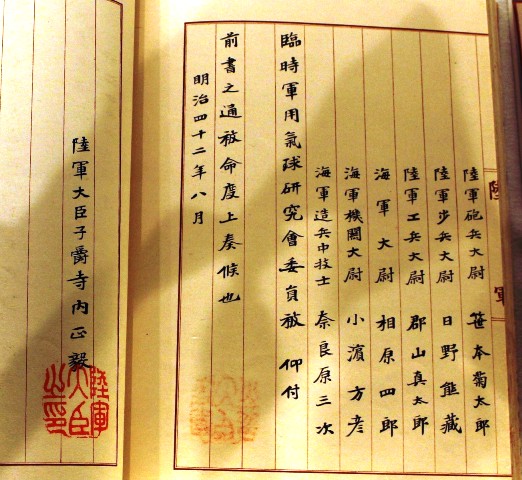 陸軍砲兵大尉 笹本菊太郎
陸軍歩兵大尉 日野熊藏
陸軍工兵大尉 郡山真太郎
海軍大尉 相原四郎
海軍機關大尉 小濱方彦
海軍造兵中技士 奈良原三次
臨時軍用氣球研究會委員被 仰付
前書之通被命度上奏候也
明治四十二年八月
陸軍大臣子爵寺内正毅
陸軍
大臣
之印
陸軍